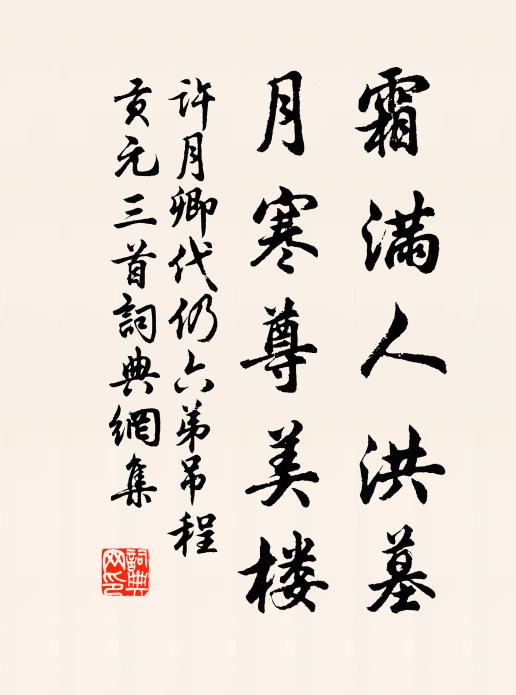 霜满人洪墓
月寒尊美楼
许月卿代仍六弟吊程
贡元三首詞典網集
詞典网印